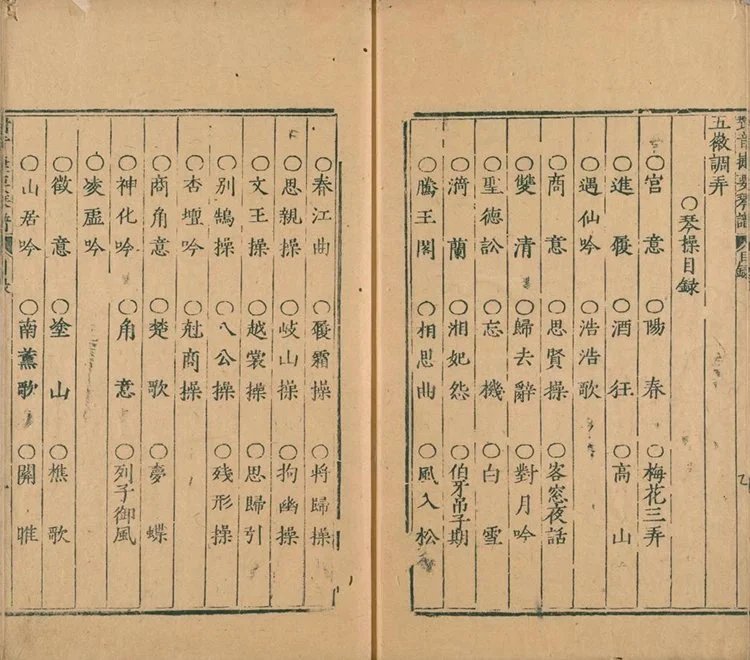 對音捷要琴譜 目錄
五徽調弄
○琴操目錄
○宮意 ○陽春 ○梅花三弄
○進履 ○酒狂 ○高山
○遇仙吟 ○浩浩歌
○商意 ○思賢操 ○客窓夜話
○雙清 ○歸去辭 ○對月吟
○聖德訟 ○忘機 ○白雪
○漪蘭 ○湘妃怨 ○伯牙吊子期
○滕王閣 ○相思曲 ○風入松
○春江曲 ○履霜操 ○將歸操
○思親操 ○岐山操 ○拘幽操
○文王操 ○越裳操 ○思歸引
○別鵠操 ○八公操 ○残形操
○杏壇吟 ○尅商操
○商角意 ○楚歌 ○夢蝶
○神化吟 ○角意 ○列子御風
○凌虛吟
○徵意 ○塗山 ○樵歌
○山居吟 ○南薰歌 ○關雎